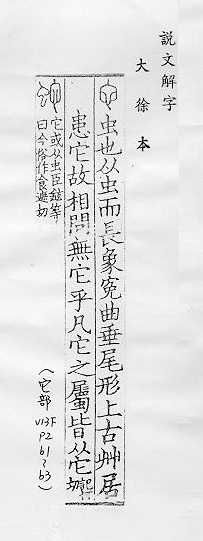 說文解字
大徐本
虫也从虫而長象冤曲垂尾形上古艸居
患它故相問無它乎凡它之屬皆从它
它或从虫臣鉉等
曰今俗作食遮切
(它部 V13F P2 b1~b3)